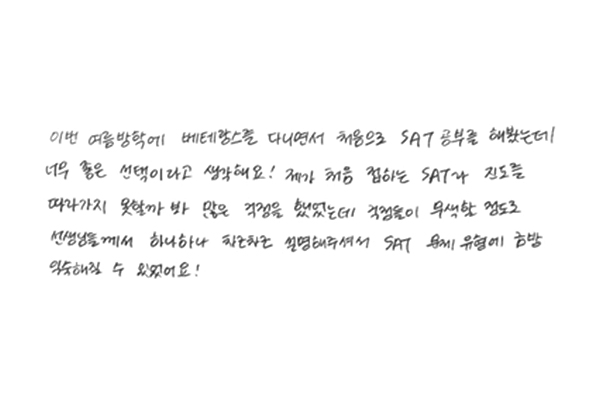 이번 여름방학에 베테랑스를 다니면서 처음으로 SAT 공부를 해봤는데
너무 좋은 선택이라고 생각해요! 제가 처음 접하는 SAT라 진도를
따라가지 못할까 봐 많은 걱정을 했었는데 걱정들이 무색할 정도로
선생님들께서 하나하나 차근차근 설명해주셔서 SAT 문제 유형에 금방
익숙해질 수 있었어요!